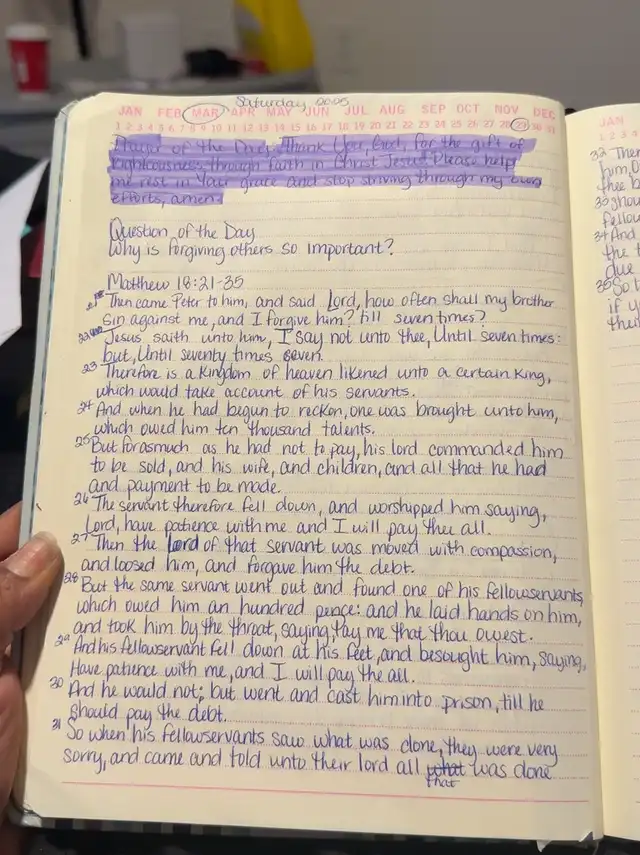 Saturday 2025
JAN FEB MAR APR MAY JUN JUL AUG SEP OCT NOV DEC
1 2 3 4 5 6 7 8 9 10 11 12 13 14 15 16 17 18 19 20 21 22 23 24 25 26 27 28 29 30 31
Prayer of the Day: Thank You, God, for the gift of
righteousness through faith in Christ Jesus. Please help
me rest in Your grace and stop striving through my own
efforts, amen.
Question of the Day
Why is forgiving others so important?
Matthew 18:21-35
21 Then came Peter to him, and said Lord, how often shall my brother
sin against me, and I forgive him? till seven times?
22 Jesus saith unto him, I say not unto thee, Until seven times:
but, Until seventy times seven.
23 Therefore is a Kingdom of heaven likened unto a certain King,
which would take account of his servants.
24 And when he had begun to reckon, one was brought unto him,
which owed him ten thousand talents.
25 But forasmuch as he had not to pay, his lord commanded him
to be sold, and his wife, and children, and all that he had
and payment to be made.
26 The servant therefore fell down, and worshipped him saying,
Lord, have patience with me and I will pay thee all.
27 Then the lord of that servant was moved with compassion,
and loosed him, and forgave him the debt.
28 But the same servant went out and found one of his fellowservants,
which owed him an hundred pence: and he laid hands on him,
and took him by the throat, saying, Pay me that thou owest.
29 And his fellowservant fell down at his feet, and besought him, saying,
Have patience with me, and I will pay the all.
30 And he would not; but went and cast him into prison, till he
should pay the debt.
31 So when his fellowservants saw what was done, they were very
sorry, and came and told unto their lord all what was done
that
JAN
1 2 3
32 Then
him, O
thee
33 Shou
fellow
34 And
the t
due
35 So
if y
their